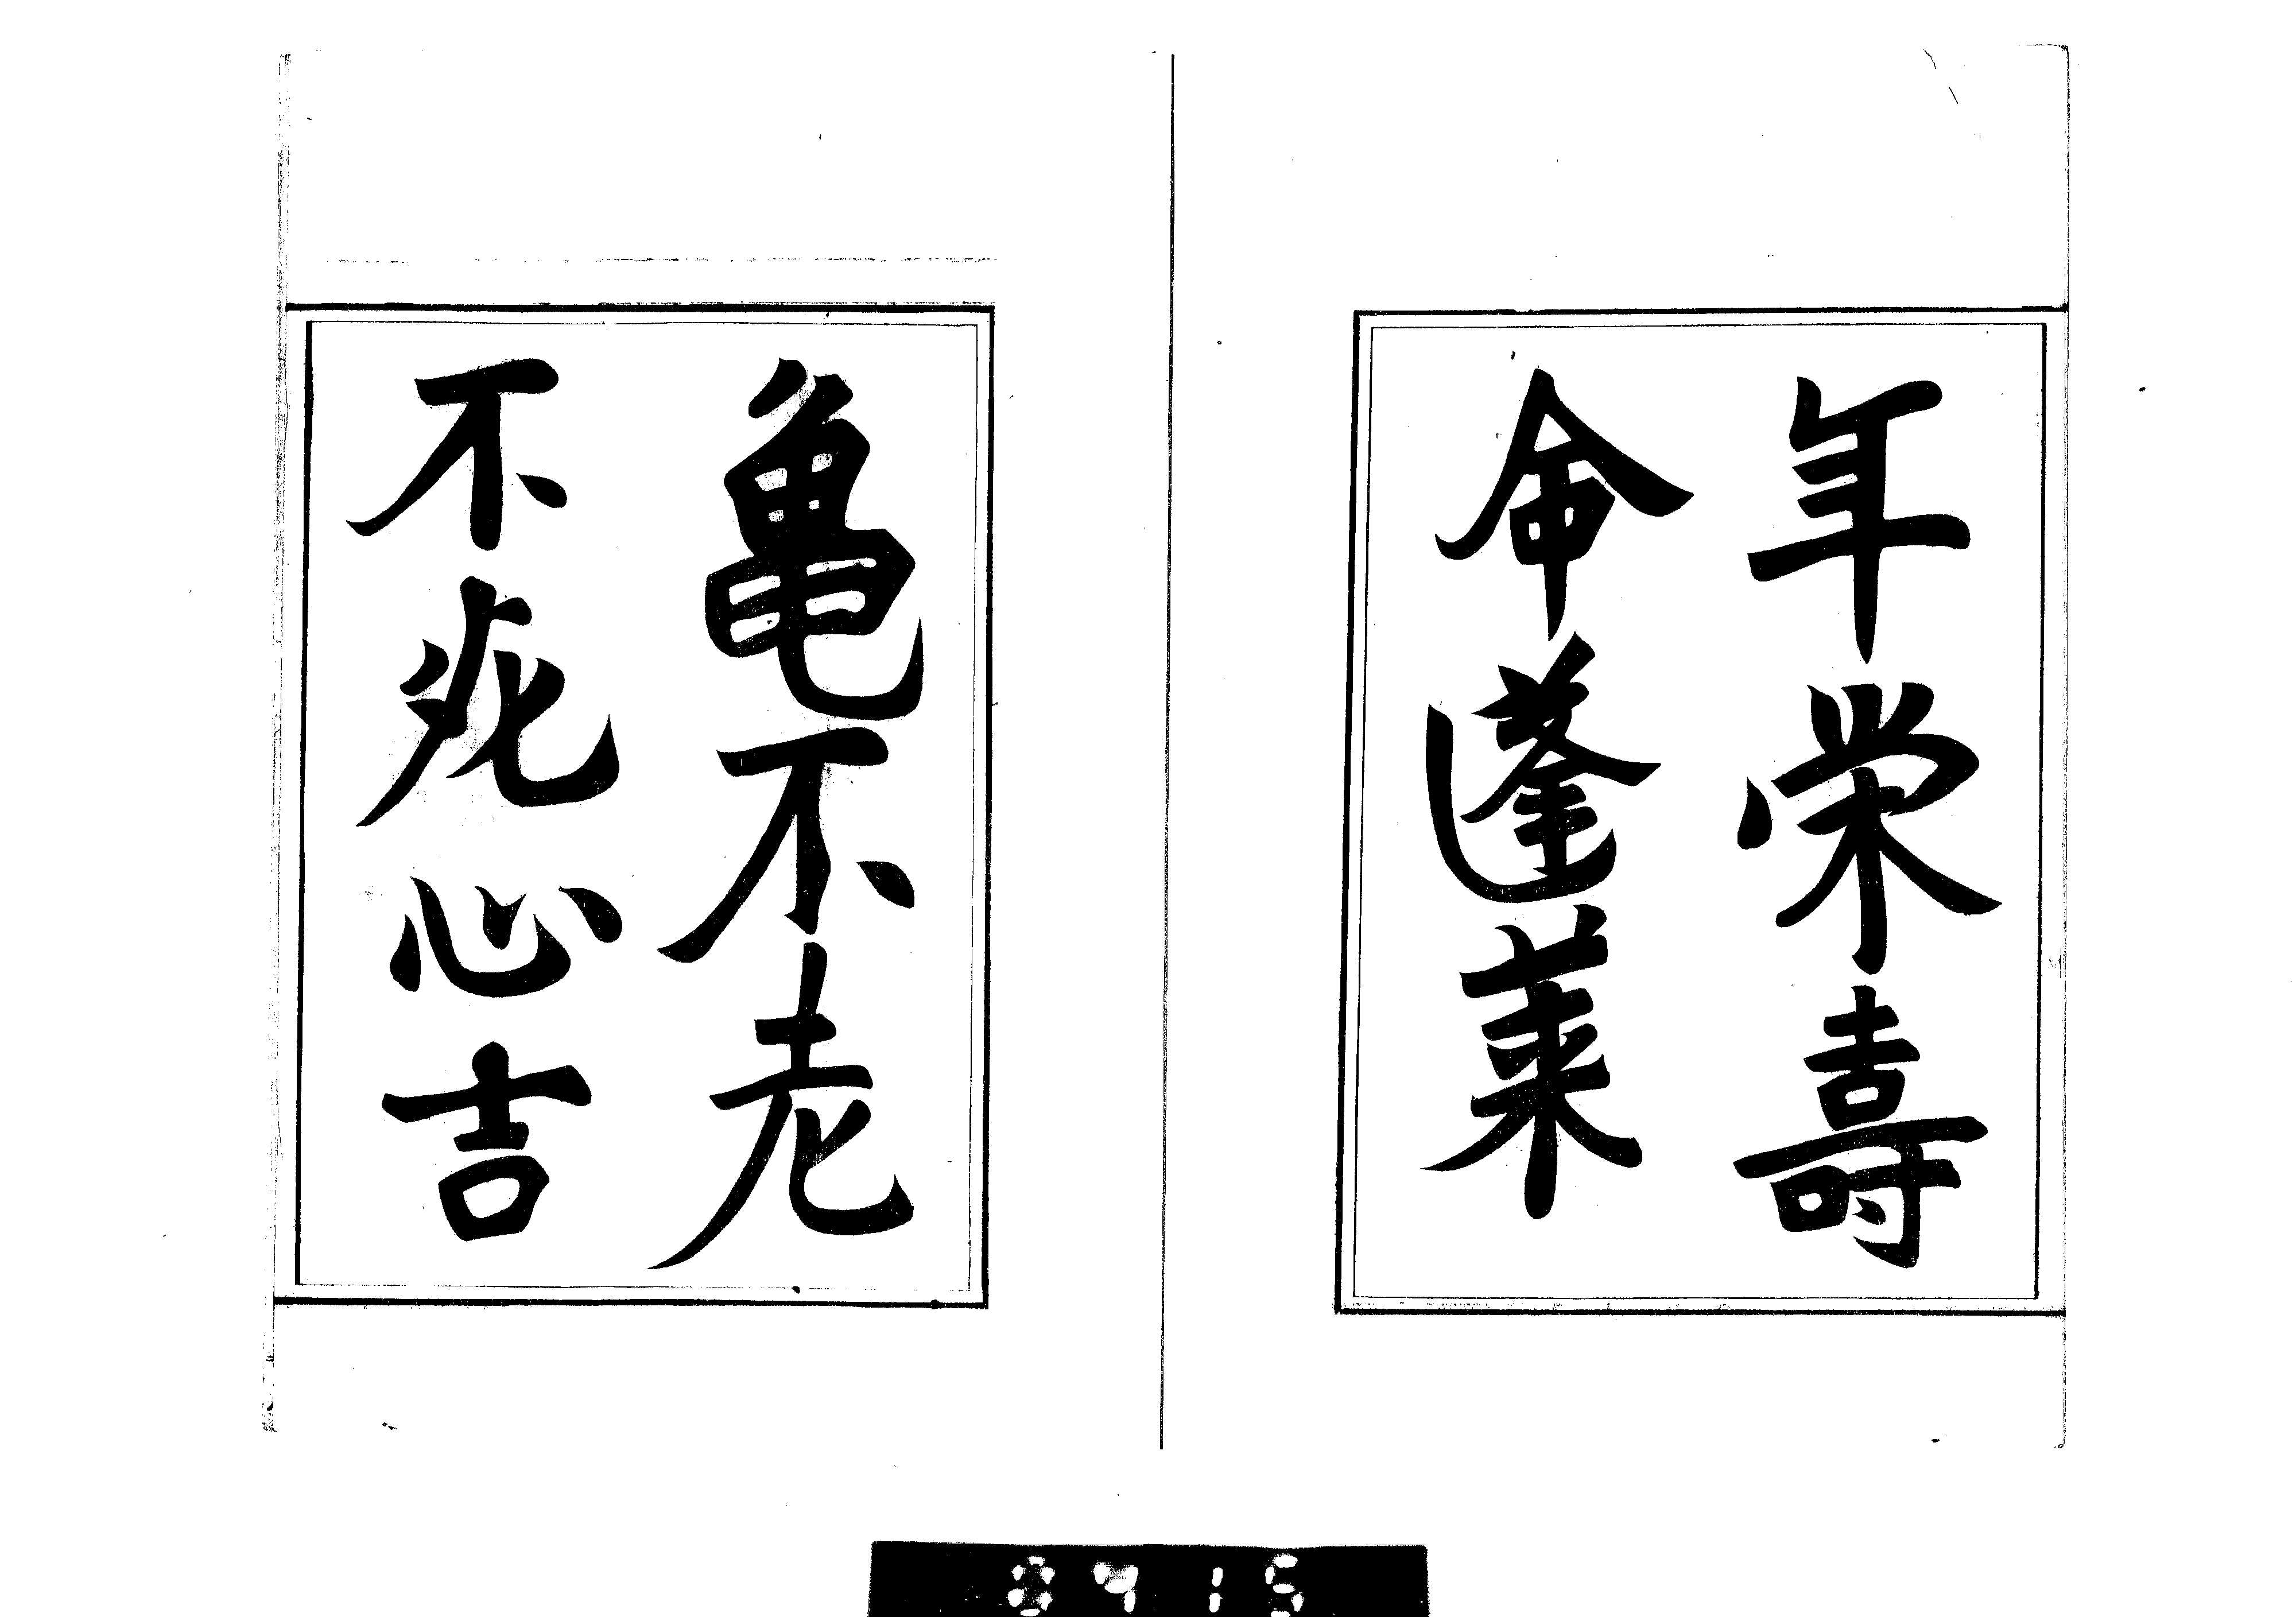 年栄壽
命蓬莱
亀不老
不死心吉